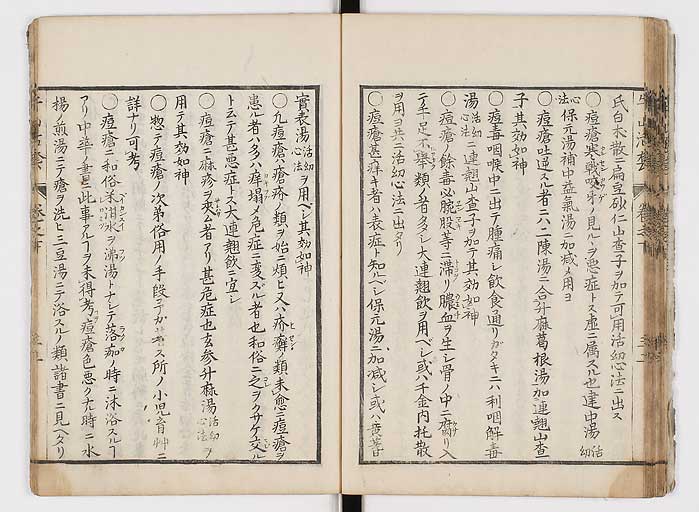 氏白朮散ニ扁豆砂仁山査子ヲ加テ可用活幼心法ニ出ス
○痘瘡寒戰咬牙ノ見ルヽヲ悪症トス虚ニ属スル也建中湯活幼
心法保元湯補中益氣湯ニ加減メ用ヨ
○痘瘡吐逆スル者ニハ二陳湯ニ合升麻葛根湯加連翹山査
子其効如神
○痘毒咽喉ヤニ出テ腫痛レ飲食通リガタキニハ利咽解毒
湯活幼心法ニ連翹山査子ヲ加テ其効如神
○痘瘡ノ餘毒心腕股等ニ滞リ膿血ヲ生レ骨ノ中ニ腐リ入
二手足不挙類ノ者多シ大連翹飲ヲ用ベレ或ハ千金内托散
ヲ用ヨ共ニ活幼心法ニ出タリ
○痘瘡甚痒キ者ハ表症ト知ベレ保元湯ニ加減レ或ハ
實表湯活幼心法ヲ用ベレ其効如神
○凡痘瘡ハ瘡疥ノ類ヲ始ニ煩ヒ又ハ疥癬ノ類未愈ニ痘瘡ヲ
患ル者ハ多ハ痒塌メ危症ニ変ズル者也和俗ニ之ヲクサケ交ル
ト云テ其悪症トス大連翹飲ニ宜レ
○痘瘡ニ麻疹ヲ兼ル者アリ甚危症也玄参升麻湯活幼心法ヲ
用テ其効如神
○惣テ痘瘡ノ次第俗用ノ手段ニ予カ著ス所ノ小児育艸ニ
詳ナリ可考
○痘瘡ニ和俗米泔水ヲ沸湯トナレテ落痂ノ時ニ沐浴スルヿ
アリ中華ノ書ニ此事アルヿヲ未得考痘瘡色悪ク出時ニ水
楊ノ煎湯ニテ瘡ヲ洗ヒ三豆湯ニテ浴スルノ類諸書ニ見ヘタリ